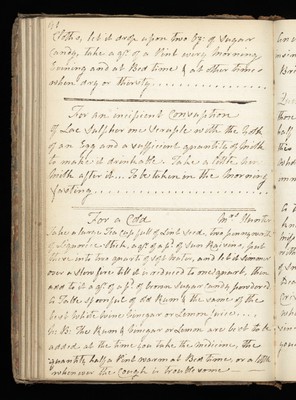 Cloths, let it drop upon two oz: of Sugar
Candy, take a qr. of a Pint every Morning
Evening and at Bed time & at other times
when dry or thirsty
For an incipient Consumption
of Lac Sulpher one Scruple with the Yolk
of an Egg and a sufficient quantity of milk
to make it drinkable. Take a little
milk after it... To be taken in the Morning
fasting
For a Cold Mrs. Hunter
Take a large Tea cup full of Lint seed, two pennyworth
of Liquorice Stick, a qr. of a lb. of Sun Raisins, put
these into two quarts of soft water, and let it simmer
over a slow fire till it is reduced to one quart, then
add to it a qr. of a lb. of brown Sugar candy powdered
a Table spoonful of Old Rum & the same of the
best White Wine Vinegar or Lemon Juice
N:B: The Rum & Vinegar or Lemon are best to be
added at the time you take the Medicine, the
quantity half a Pint warm at Bed time, or a little
whenever the Cough is troublesome